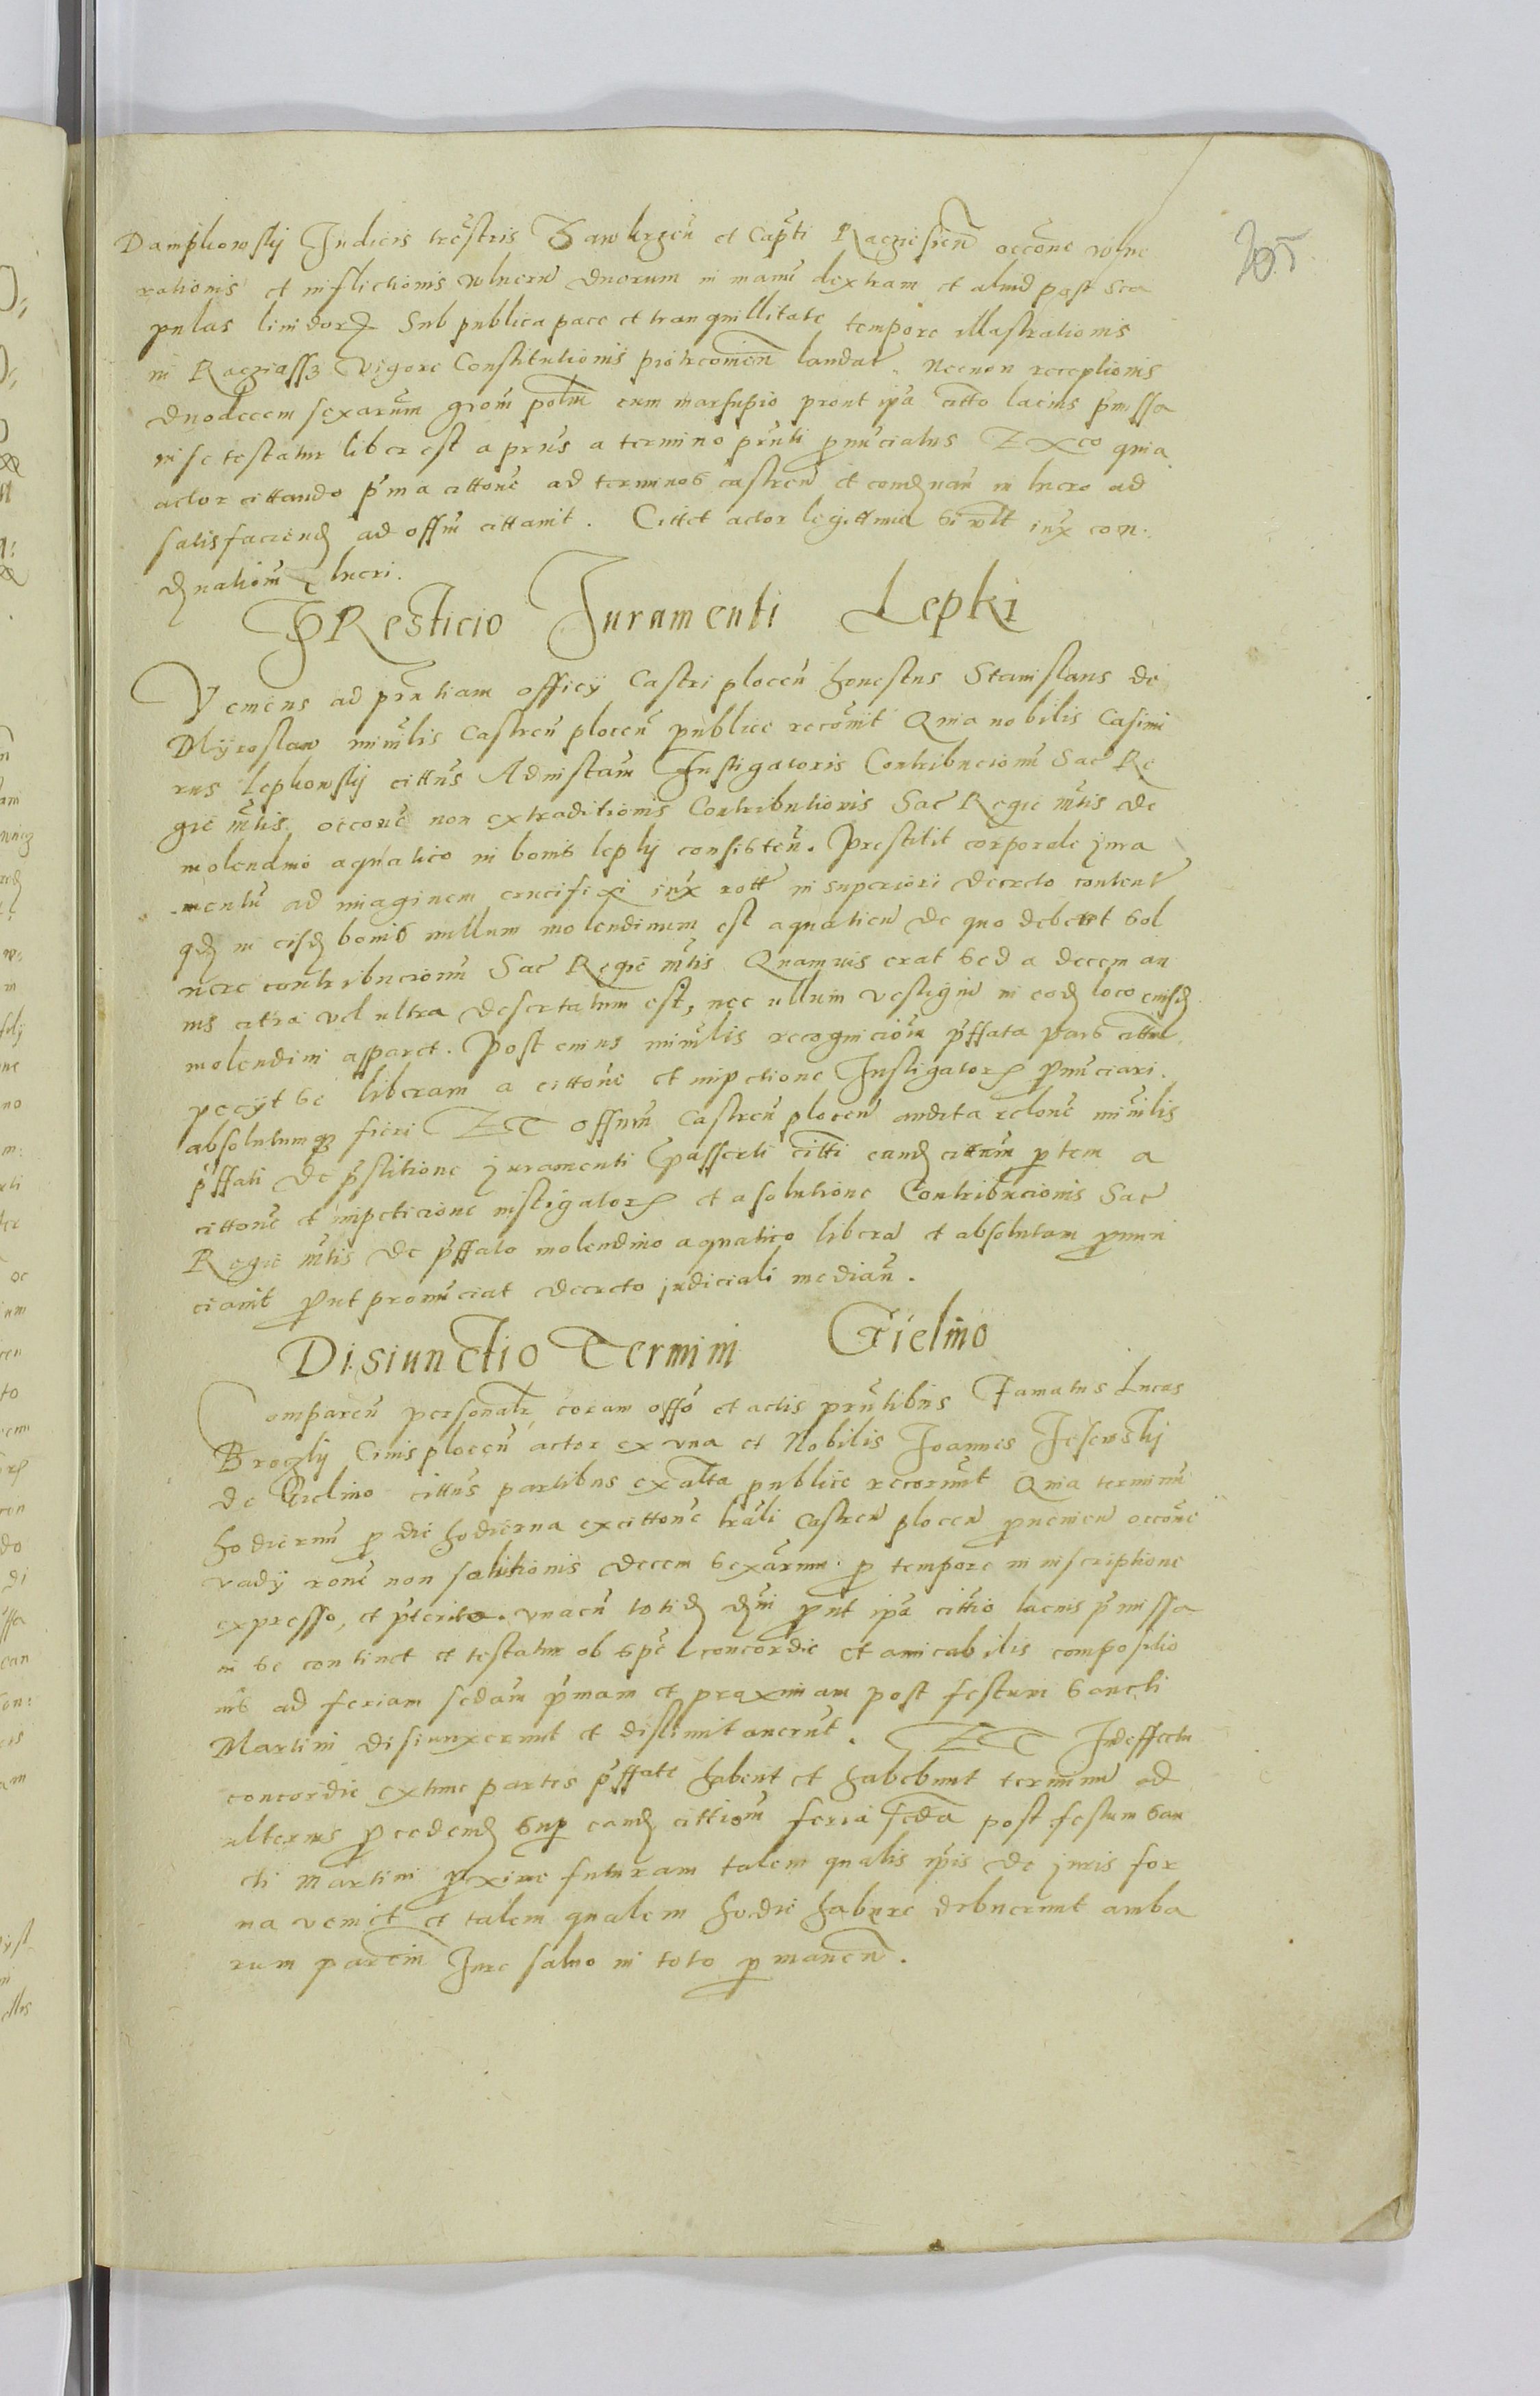 35
Dampkowsky Judicis trestris Zawkrzen et Capti Raczazien occone vulne
rationis et inflictionis vulneru duorum in manu dextram et aliud post sca
pulas lividor Sub publica pace et tranquillitate tempore illustrationis
in Racziassz vigore Constitutionis Piotrcovien laudat. Necnon receptionis
duodecem sexarum grom polm cum marsupio prout ipa citto lacius pmissa
in se testatur liber est a prns a termino prnti pnuciatus Z Ex eo quia
actor cittando pma cittone ad terminos castren et comdnan in lucro ad
satisfaciend ad offm cittavit. Cittet actor legittime si vlt iux con
dnationi lucri.
PResticio Juramenti Lepki
Veniens ad prntiam officy Castri plocen honestus Stanislaus de
Myroslaw minrlis Castren plocen publice recovit Quia nobilis Casimi
rus Lepkowsky cittus Ad instam Instigatoris Contribucionu Sac Re
gie mtis, occone non extraditionis Contributionis Sac Regie mtis de
molendino aquatico in bonis lepky consisten. Prestitit corporale jura
mentu ad imaginem crucifixi iux rott in superiori decreto content
qd in eisd bonis nullum molendinum est aquaticu de quo deberet sol
vere contribucionu Sac Regie mtis Quamvis erat sed a decem an
nis citra vel ultra desertatum est, nec ullum vestigiu in eod loco eiusd
molendini apparet. Post cuius minrlis recognicionem pffata pars citta
pecyt se liberam a cittone et inpetione Instigator pnuciari.
absolutumq fieri ET Offium Castren plocen audita relone minrlis
pffati de pstitione juramenti p asserti citti eand cittam ptem a
cittone et inpeticione instigator et a solutione Contribucionis Sac
Regie mtis de pffato molendino aquatico libera et absolutam pnun
ciavit put pronuciat decreto judiciali median.
Disiunctio Termini Gielino
Comparen personalr coram offo et actis prntibus Famatus Lucas
Brozky Civis plocen actor ex una et Nobilis Joannes Jesewsky
de Gielino cittus partibus ex alta publice recorunt Quia terminu
hodiernu p die hodierna ex cittone trali Castren plocen pvenien occone
vady rone non solutionis decem sexarum p tempore in inscriptione
expresso, et pterito. unacu totid dni put ipa cittio lacius pmissa
in se continet et testatur ob spe concordie et amicabilis compositio
nis ad feriam sedam pmam et proximam post festum Sancti
Martini disiunxerunt et dislimitaverut. ET In deffectu
concordie extunc partes pffate habent et habebunt terminu ad
ulterius pcedend sup eand cittiom feria seda post festum San
cti Martini pxime futuram talem qualis ipis de juris for
ma venit et talem qualem hodie habere debuerunt amba
rum partiu Jure salvo in toto pmanen.